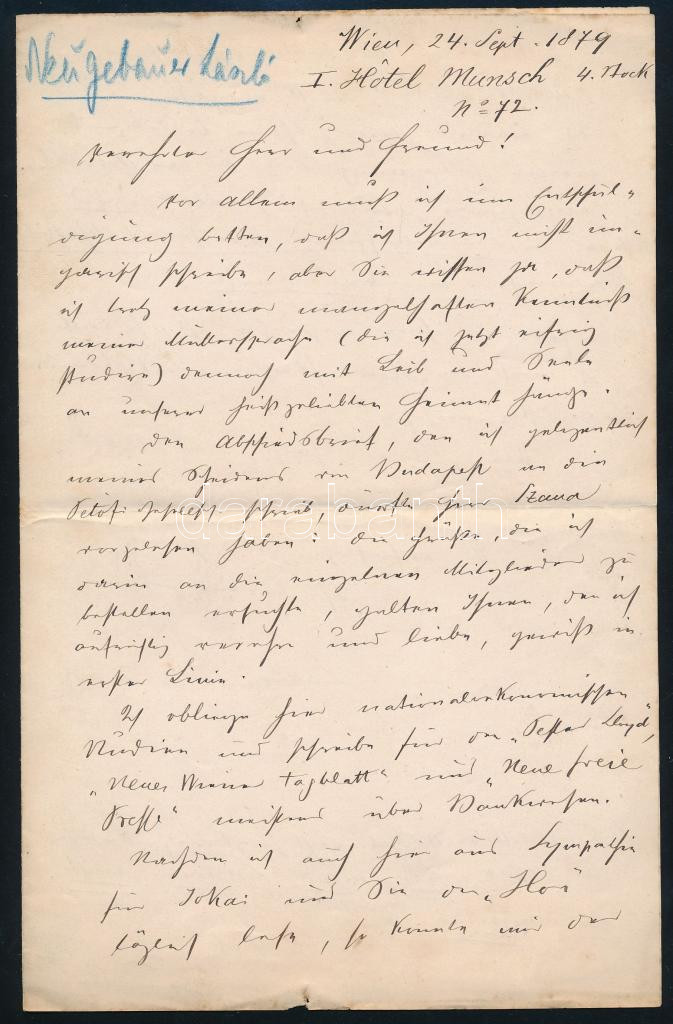 Neugebauer László
Wien, 24. Sept. 1879
I. Hôtel Munsch 4. Stock
No 72.
Verehrter Herr und Freund!
Vor allem muß ich um Entschul-
digung bitten, daß ich Ihnen nicht un-
garisch schreibe, aber Sie wissen ja, daß
ich trotz meiner mangelhaften Kenntniß
meiner Muttersprache (die ich jetzt eifrig
studire) dennoch mit Leib und Seele
an unserer heißgeliebten Heimat hänge.
Den Abschiedsbrief, den ich gelegentlich
meines Scheidens von Budapest an die
Petöfi Gesellsch. schrieb, dürfte Herr Szana
vorgelesen haben; die Grüße, die ich
darin an die einzelnen Mitglieder zu
bestellen ersuchte, galten Ihnen, den ich
aufrichtig verehre und liebe, gewiß in
erster Linie.
Ich obliege hier nationalökonomischen
Studien und schreibe für den „Pester Lloyd",
„Neues Wiener Tagblatt" und „Neue freie
Presse" meistens über Bankwesen.
Nachdem ich auch hier aus Sympathie
für Jokai und Sie den „Hon"
täglich lese, so konnte mir der
darabanth